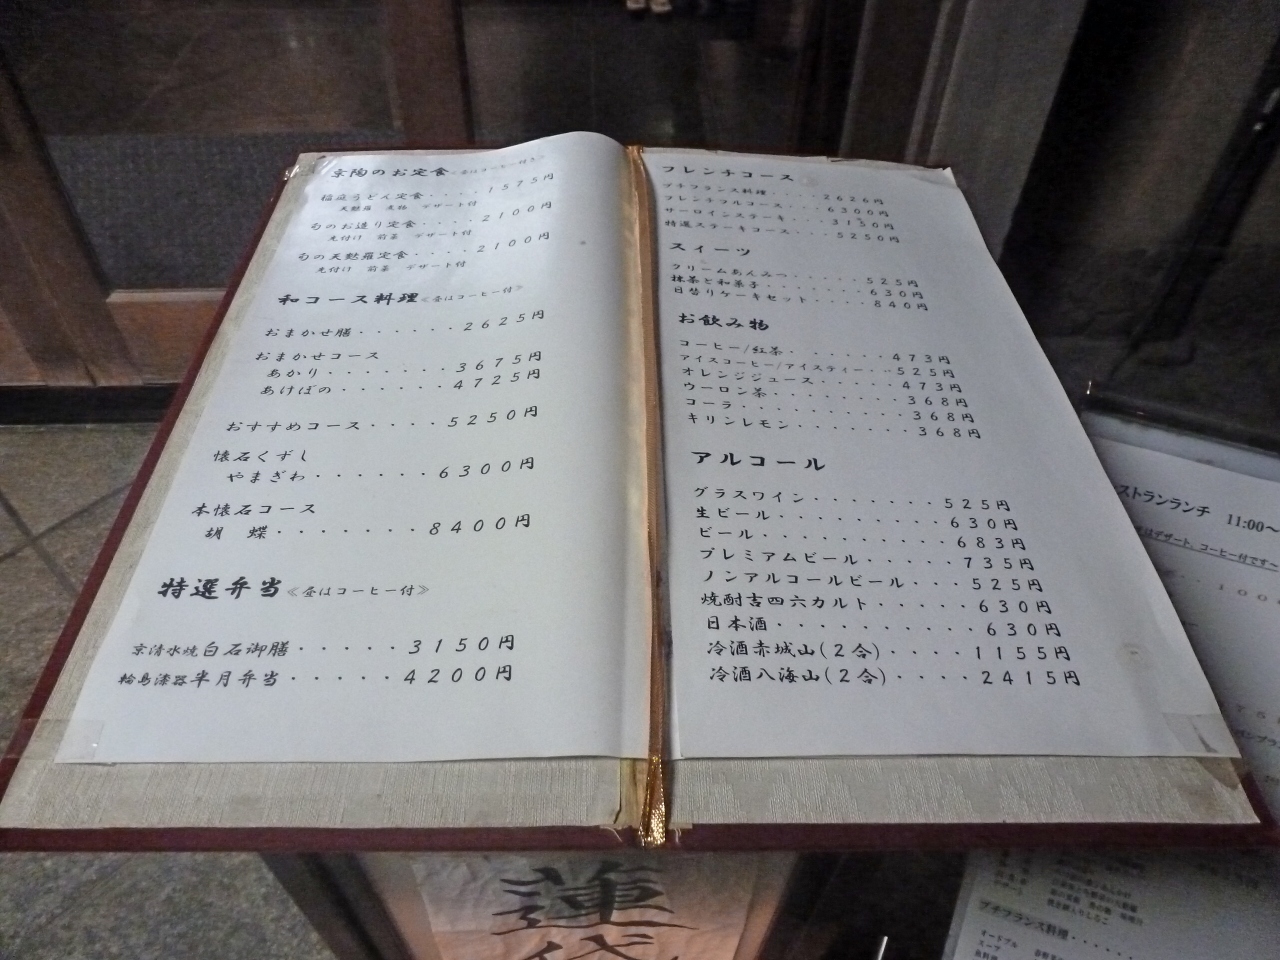 京陶のお定食≪昼はコーヒー付き≫
稲庭うどん定食・・・・1575円
天麩羅 煮物 デザート付
旬のお造り定食・・・・2100円
先付け 前菜 デザート付
旬の天麩羅定食・・・・2100円
先付け 前菜 デザート付
和コース料理≪昼はコーヒー付≫
おまかせ膳・・・・・・2625円
おまかせコース
あかり・・・・・・・・3675円
あけぼの・・・・・・・4725円
おすすめコース・・・・5250円
懐石くずし
やまぎわ・・・・・・6300円
本懐石コース
胡 蝶・・・・・・・8400円
特選弁当≪昼はコーヒー付≫
京清水焼白石御膳・・・・・3150円
輪島漆器半月弁当・・・・・4200円
フレンチコース
プチフランス料理・・・・2626円
フレンチフルコース・・・6300円
サーロインステーキ・・・3150円
特選ステーキコース・・・5250円
スイーツ
クリームあんみつ・・・・・・525円
抹茶と和菓子・・・・・・・・630円
日替りケーキセット・・・・840円
お飲み物
コーヒー/紅茶・・・・・・・473円
アイスコーヒー/アイスティー・・・525円
オレンジジュース・・・・・・473円
ウーロン茶・・・・・・・・・368円
コーラ・・・・・・・・・・・368円
キリンレモン・・・・・・・・368円
アルコール
グラスワイン・・・・・・・525円
生ビール・・・・・・・・・630円
ビール・・・・・・・・・・683円
プレミアムビール・・・・・735円
ノンアルコールビール・・・525円
焼酎吉四六カルト・・・・・630円
日本酒・・・・・・・・・・630円
冷酒赤城山(2合)・・・・1155円
冷酒八海山(2合)・・・・2415円
ストランランチ 11:00〜
はデザート、コーヒー付です〜
プチフランス料理・・・・・
オードブル
スープ
蓮代